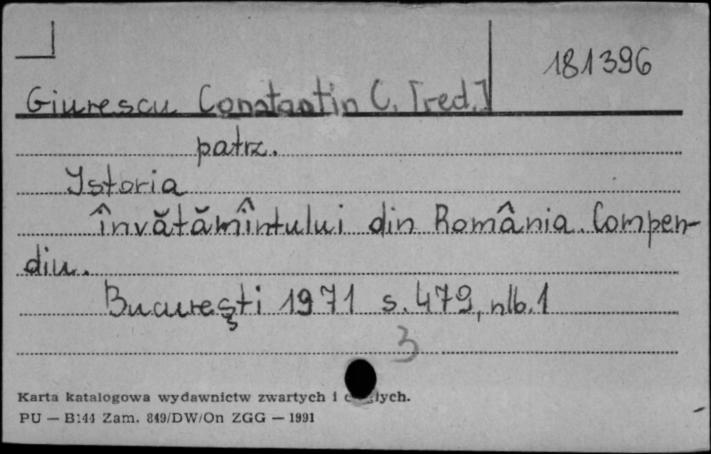 181396
Giurescu Constantin C. [red.]
patrz.
Istoria
Învătămîntului din România. Compen-
diu.
Bucureşti 1971 s. 479, nlb. 1
3
Karta katalogowa wydawnictw zwartych i
PU — B:44 Zam. 849/DW/On ZGG — 1991